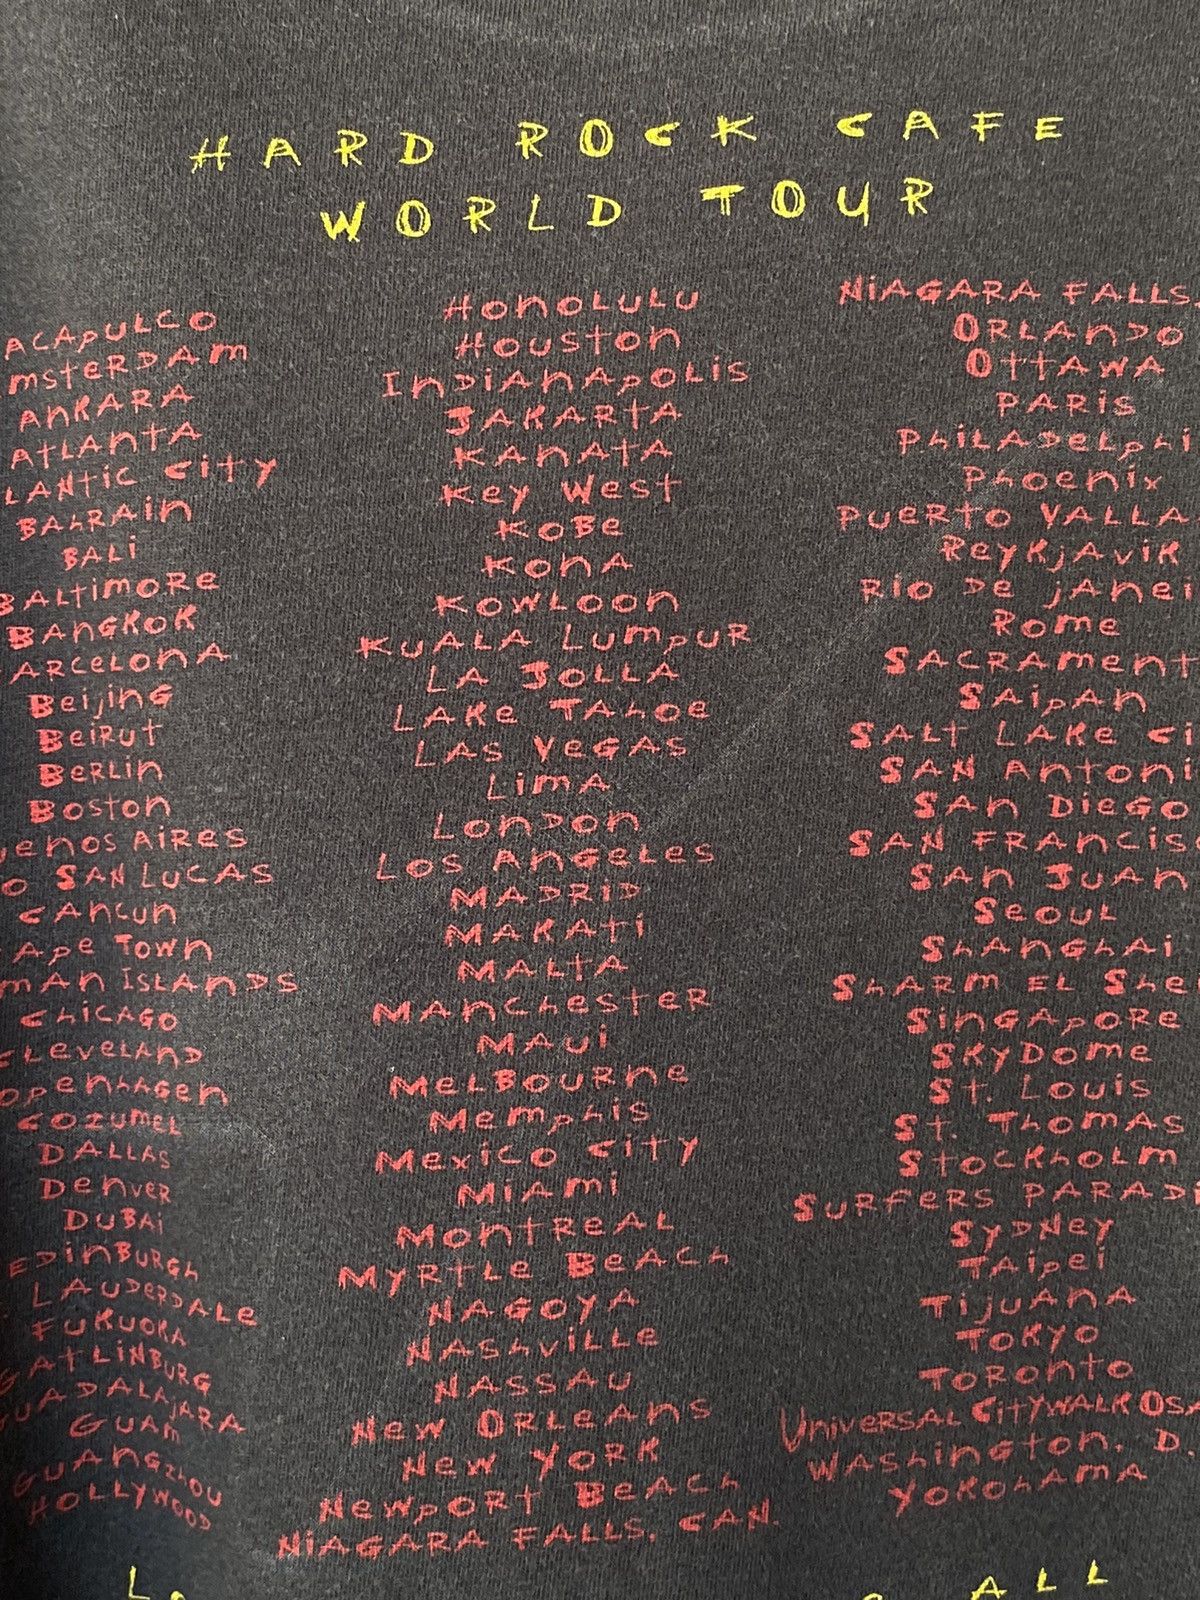 HARD ROCK CAFE
WORLD TOUR
ACAPULCO
msteRDAm
ANKARA
ATLANTA
LANtic City
BAhRAin
BALi
BALtimoRe
BANGKOK
ARCeLonA
Beijing
BeiRut
BeRLin
Boston
enos AiRes
o SAN LUCAS
CAncun
Ape Town
mAn IsLAnDs
ChiCAGO
CLeveLAnD
openhAGen
COZUmeL
DALLAS
DenveR
DUBAi
EDinBURGh
LAUDeRDALe
FUKUOKA
GAtLinBURG
UADALAjARA
GUAm
GUAnGZhOU
HOLLYWOOD
HonoLULU
Houston
InDiAnApoLis
JAKARtA
KAnAtA
Key West
KoBe
KonA
KowLoon
KUALA LumpuR
LA JOLLA
LAKe TAhoe
LAS VeGAS
LimA
LonDon
Los AnGeLes
MADRiD
MAKAti
MALtA
MAnchesteR
MAui
MeLBouRne
Memphis
Mexico City
MiAmi
MontReAL
MyRtLe BeACh
NAGOYA
NAShviLLe
NASSAU
New ORLeAns
New YoRK
NewpoRt BeACh
NiAGARA FALLS, CAN.
NiAGARA FALLS
ORLAnDO
OttAWA
PARis
PhiLADeLphi
Phoenix
PueRto VALLA
ReyKjAviK
Rio De jAnei
Rome
SACRAment
SAipAn
SALt LAKe Ci
SAN Antoni
SAn DieGo
SAN FRAncisc
SAn JUAn
SeouL
ShAnGhAi
ShARm EL She
SinGApoRe
SKyDome
St. Louis
St. ThomAS
StoCKhoLm
SURfeRS PARAD
SyDNey
TAipei
TijuAnA
ToKyo
ToRonto
UniveRSAL CityWALK OSA
WAShington, D.
YoKohAmA
ALL